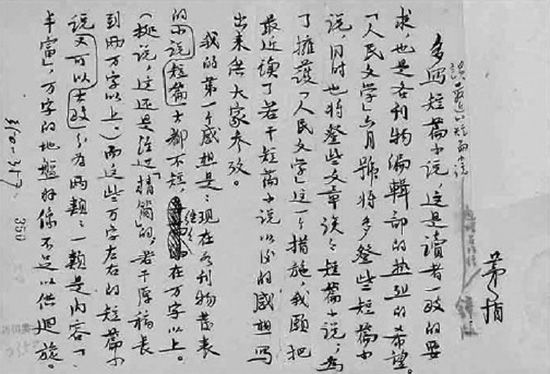 茅盾
谈最近的短篇小说
多写短篇小说,这是读者一致的要
求,也是各刊物编辑部的热烈的希望。
「人民文学」六月號将多登些短篇小
说,同时也将登些文章谈谈短篇小说;为
了擁護「人民文学」这一个措施,我願把
最近读了若干短篇小说以后的感想写
出来供大家参攷。
我的第一个感想是:现在各刊物发表
的小说短篇大都不短,往往在万字以上。
(据说,这还是经过「精简」的,若干原稿长
到两万字以上。)而这些万字左右的短篇小
说又可以大致分为两类:一类是内容「
丰富」,万字的地盤好像不足以供迴旋。
310-317
350